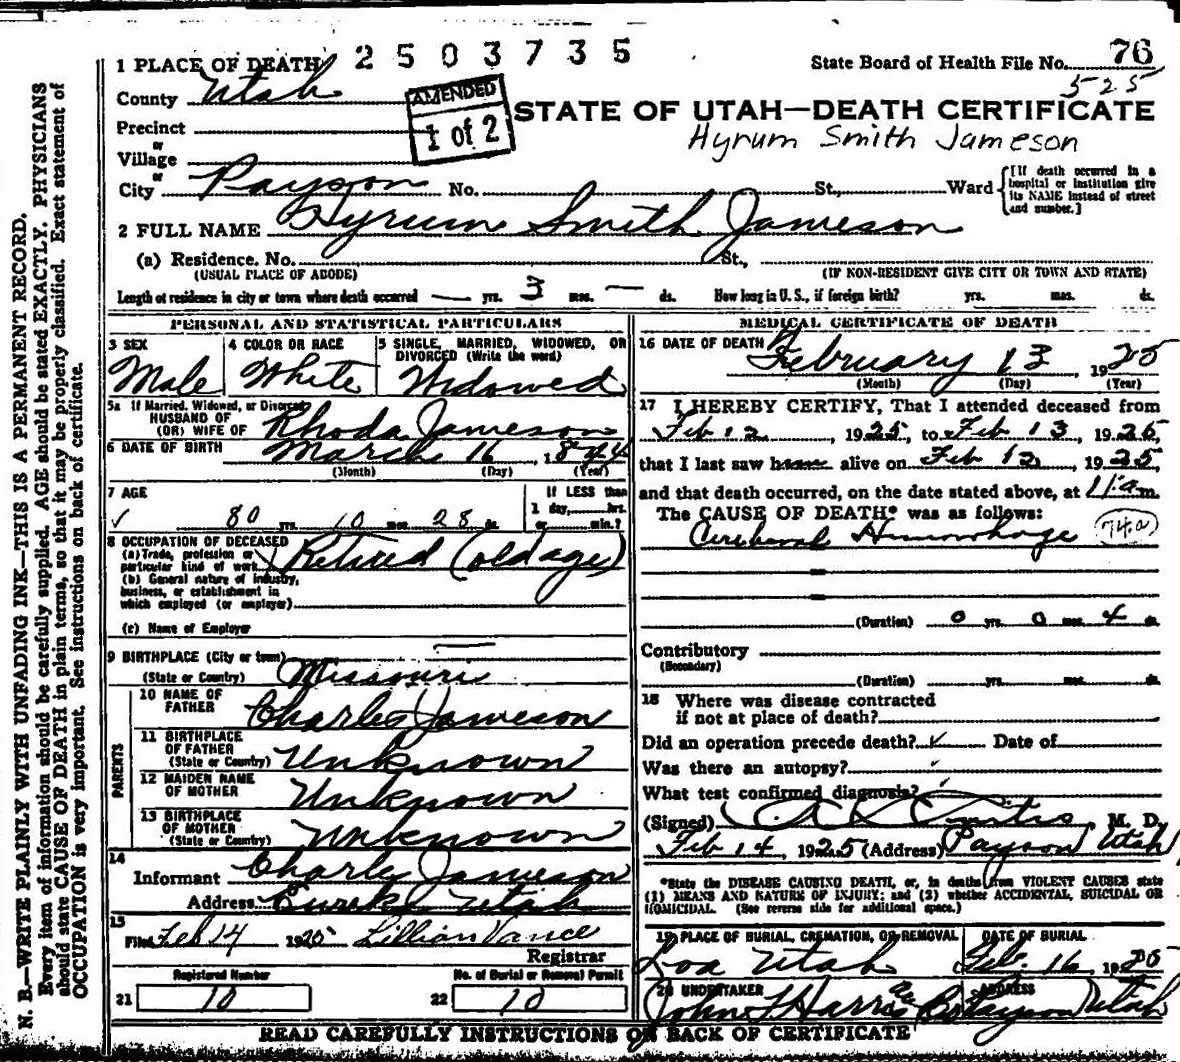 2503735
State Board of Health File No. 76
525
1 PLACE OF DEATH
County Utah
AMENDED
1 of 2
STATE OF UTAH—DEATH CERTIFICATE
Hyrum Smith Jameson
Precinct
or
Village
or
City Payson No. St., Ward
[If death occurred in a hospital or institution give its NAME instead of street and number.]
2 FULL NAME Hyrum Smith Jameson
(a) Residence. No. St.,
(USUAL PLACE OF ABODE) (IF NON-RESIDENT GIVE CITY OR TOWN AND STATE)
Length of residence in city or town where death occurred — yrs. 3 mos. — ds. How long in U. S., if foreign birth? yrs. mos. ds.
PERSONAL AND STATISTICAL PARTICULARS
3 SEX
Male
4 COLOR OR RACE
White
5 SINGLE, MARRIED, WIDOWED, OR
DIVORCED (Write the word)
Widowed
5a If Married, Widowed, or Divorced
HUSBAND OF
(OR) WIFE OF Rhoda Jameson
6 DATE OF BIRTH March 16, 1844
(Month) (Day) (Year)
7 AGE
80 yrs. 10 mos. 28 ds.
If LESS than
1 day, hrs.
or min.?
8 OCCUPATION OF DECEASED
(a) Trade, profession or
particular kind of work Retired (old age)
(b) General nature of industry,
business, or establishment in
which employed (or employer)
(c) Name of Employer
9 BIRTHPLACE (City or town) —
(State or Country) Missouri
PARENTS
10 NAME OF
FATHER Charles Jameson
11 BIRTHPLACE
OF FATHER
(State or Country) Unknown
12 MAIDEN NAME
OF MOTHER Unknown
13 BIRTHPLACE
OF MOTHER
(State or Country) Unknown
14
Informant Charles Jameson
Address Eureka Utah
15
Filed Feb 14 1925 Lillian Vance
Registrar
Registered Number
21 10
No. of Burial or Removal Permit
22 10
MEDICAL CERTIFICATE OF DEATH
16 DATE OF DEATH
February 13 1925
(Month) (Day) (Year)
17 I HEREBY CERTIFY, That I attended deceased from
Feb 12, 1925, to Feb 13, 1925,
that I last saw alive on Feb 12, 1925,
and that death occurred, on the date stated above, at 11 a m.
The CAUSE OF DEATH* was as follows:
Cerebral Hemorrhage 74a
(Duration) 0 yrs. 0 mos. 4 ds.
Contributory
(Secondary)
(Duration) yrs. mos. ds.
18 Where was disease contracted
if not at place of death?
Did an operation precede death? Date of
Was there an autopsy?
What test confirmed diagnosis?
(Signed) Curtis, M. D.
Feb 14, 1925 (Address) Payson Utah
*State the DISEASE CAUSING DEATH, or, in deaths from VIOLENT CAUSES state
(1) MEANS AND NATURE OF INJURY; and (2) whether ACCIDENTAL, SUICIDAL OR
HOMICIDAL. (See reverse side for additional space.)
19 PLACE OF BURIAL, CREMATION, OR REMOVAL
Loa Utah
DATE OF BURIAL
Feb. 16 1925
20 UNDERTAKER
John Harris
ADDRESS
Payson Utah
READ CAREFULLY INSTRUCTIONS ON BACK OF CERTIFICATE
N. B.—WRITE PLAINLY WITH UNFADING INK—THIS IS A PERMANENT RECORD.
Every item of information should be carefully supplied. AGE should be stated EXACTLY. PHYSICIANS
should state CAUSE OF DEATH in plain terms, so that it may be properly classified. Exact statement of
OCCUPATION is very important. See instructions on back of certificate.